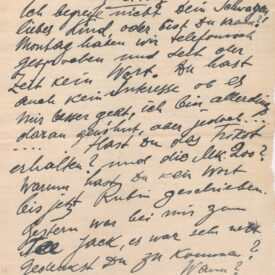 Ich begreife nicht Dein Schweigen
liebes Kind, oder bist Du krank?
Montag haben wir telefonisch
gesprochen und seit der
Zeit kein Wort. Du hast
auch kein Interesse ob es
mir besser geht, ich bin allerdings
daran gewöhnt, aber jedoch...
.... Hast Du das
erhalten? und die Mk. 200?
Warum hast Du kein Wort
bis jetzt Rubin geschrieben.
Gestern war bei mir zum
Tee Jack, es war sehr nett
Gedenkst Du zu kommen?
Wann?